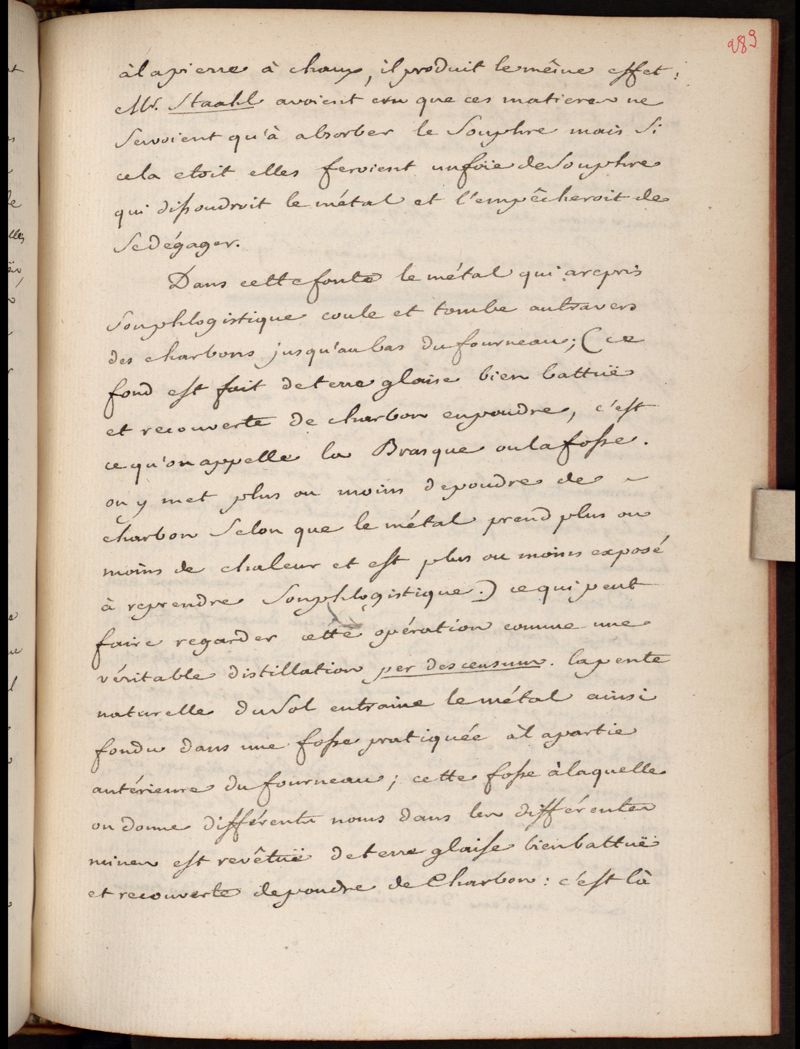 289
à la pierre à chaux, il produit le même effet:
Mr. Staahl avoient cru que ces matieres ne
servoient qu'à absorber le Souphre mais Si
cela etoit elles feroient un foie de Souphre
qui dissoudroit le métal et l'empêcheroit de
Se dégager.
Dans cette fonte le métal qui a repris
Son phlogistique coule et tombe au travers
des charbons jusqu'au bas du fourneau; (ce
fond est fait de terre glaise bien battuë
et recouverte de charbon en poudre, c'est
ce qu'on appelle la Brasque ou la fosse.
on y met plus ou moins de poudre de ~
charbon Selon que le métal prend plus ou
moins de chaleur et est plus ou moins exposé
à reprendre Son phlogistique.) ce qui peut
faire regarder cette opération comme une
véritable distillation per descensum. la pente
naturelle du Sol entraine le métal ainsi
fondu dans une fosse pratiquée à la partie
antérieure du fourneau; cette fosse à laquelle
on donne différents noms dans les différentes
mines est revêtuë de terre glaise bien battuë
et recouverte de poudre de Charbon: c'est là